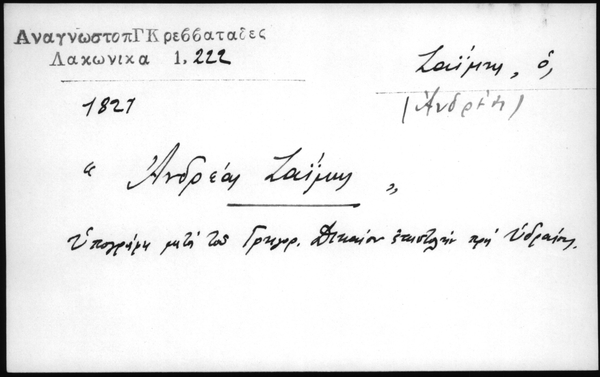 ΑναγνωστοπΓΚρεββαταδες
Λακωνικα 1, 222
Ζαΐμης, ὁ,
(Ἀνδρέας)
1821
“ Ἀνδρέας Ζαΐμης „
Ὑπογράφει μετά τοῦ Γρηγορ. Δικαίου ἐπιστολήν πρός Ὑδραίους.